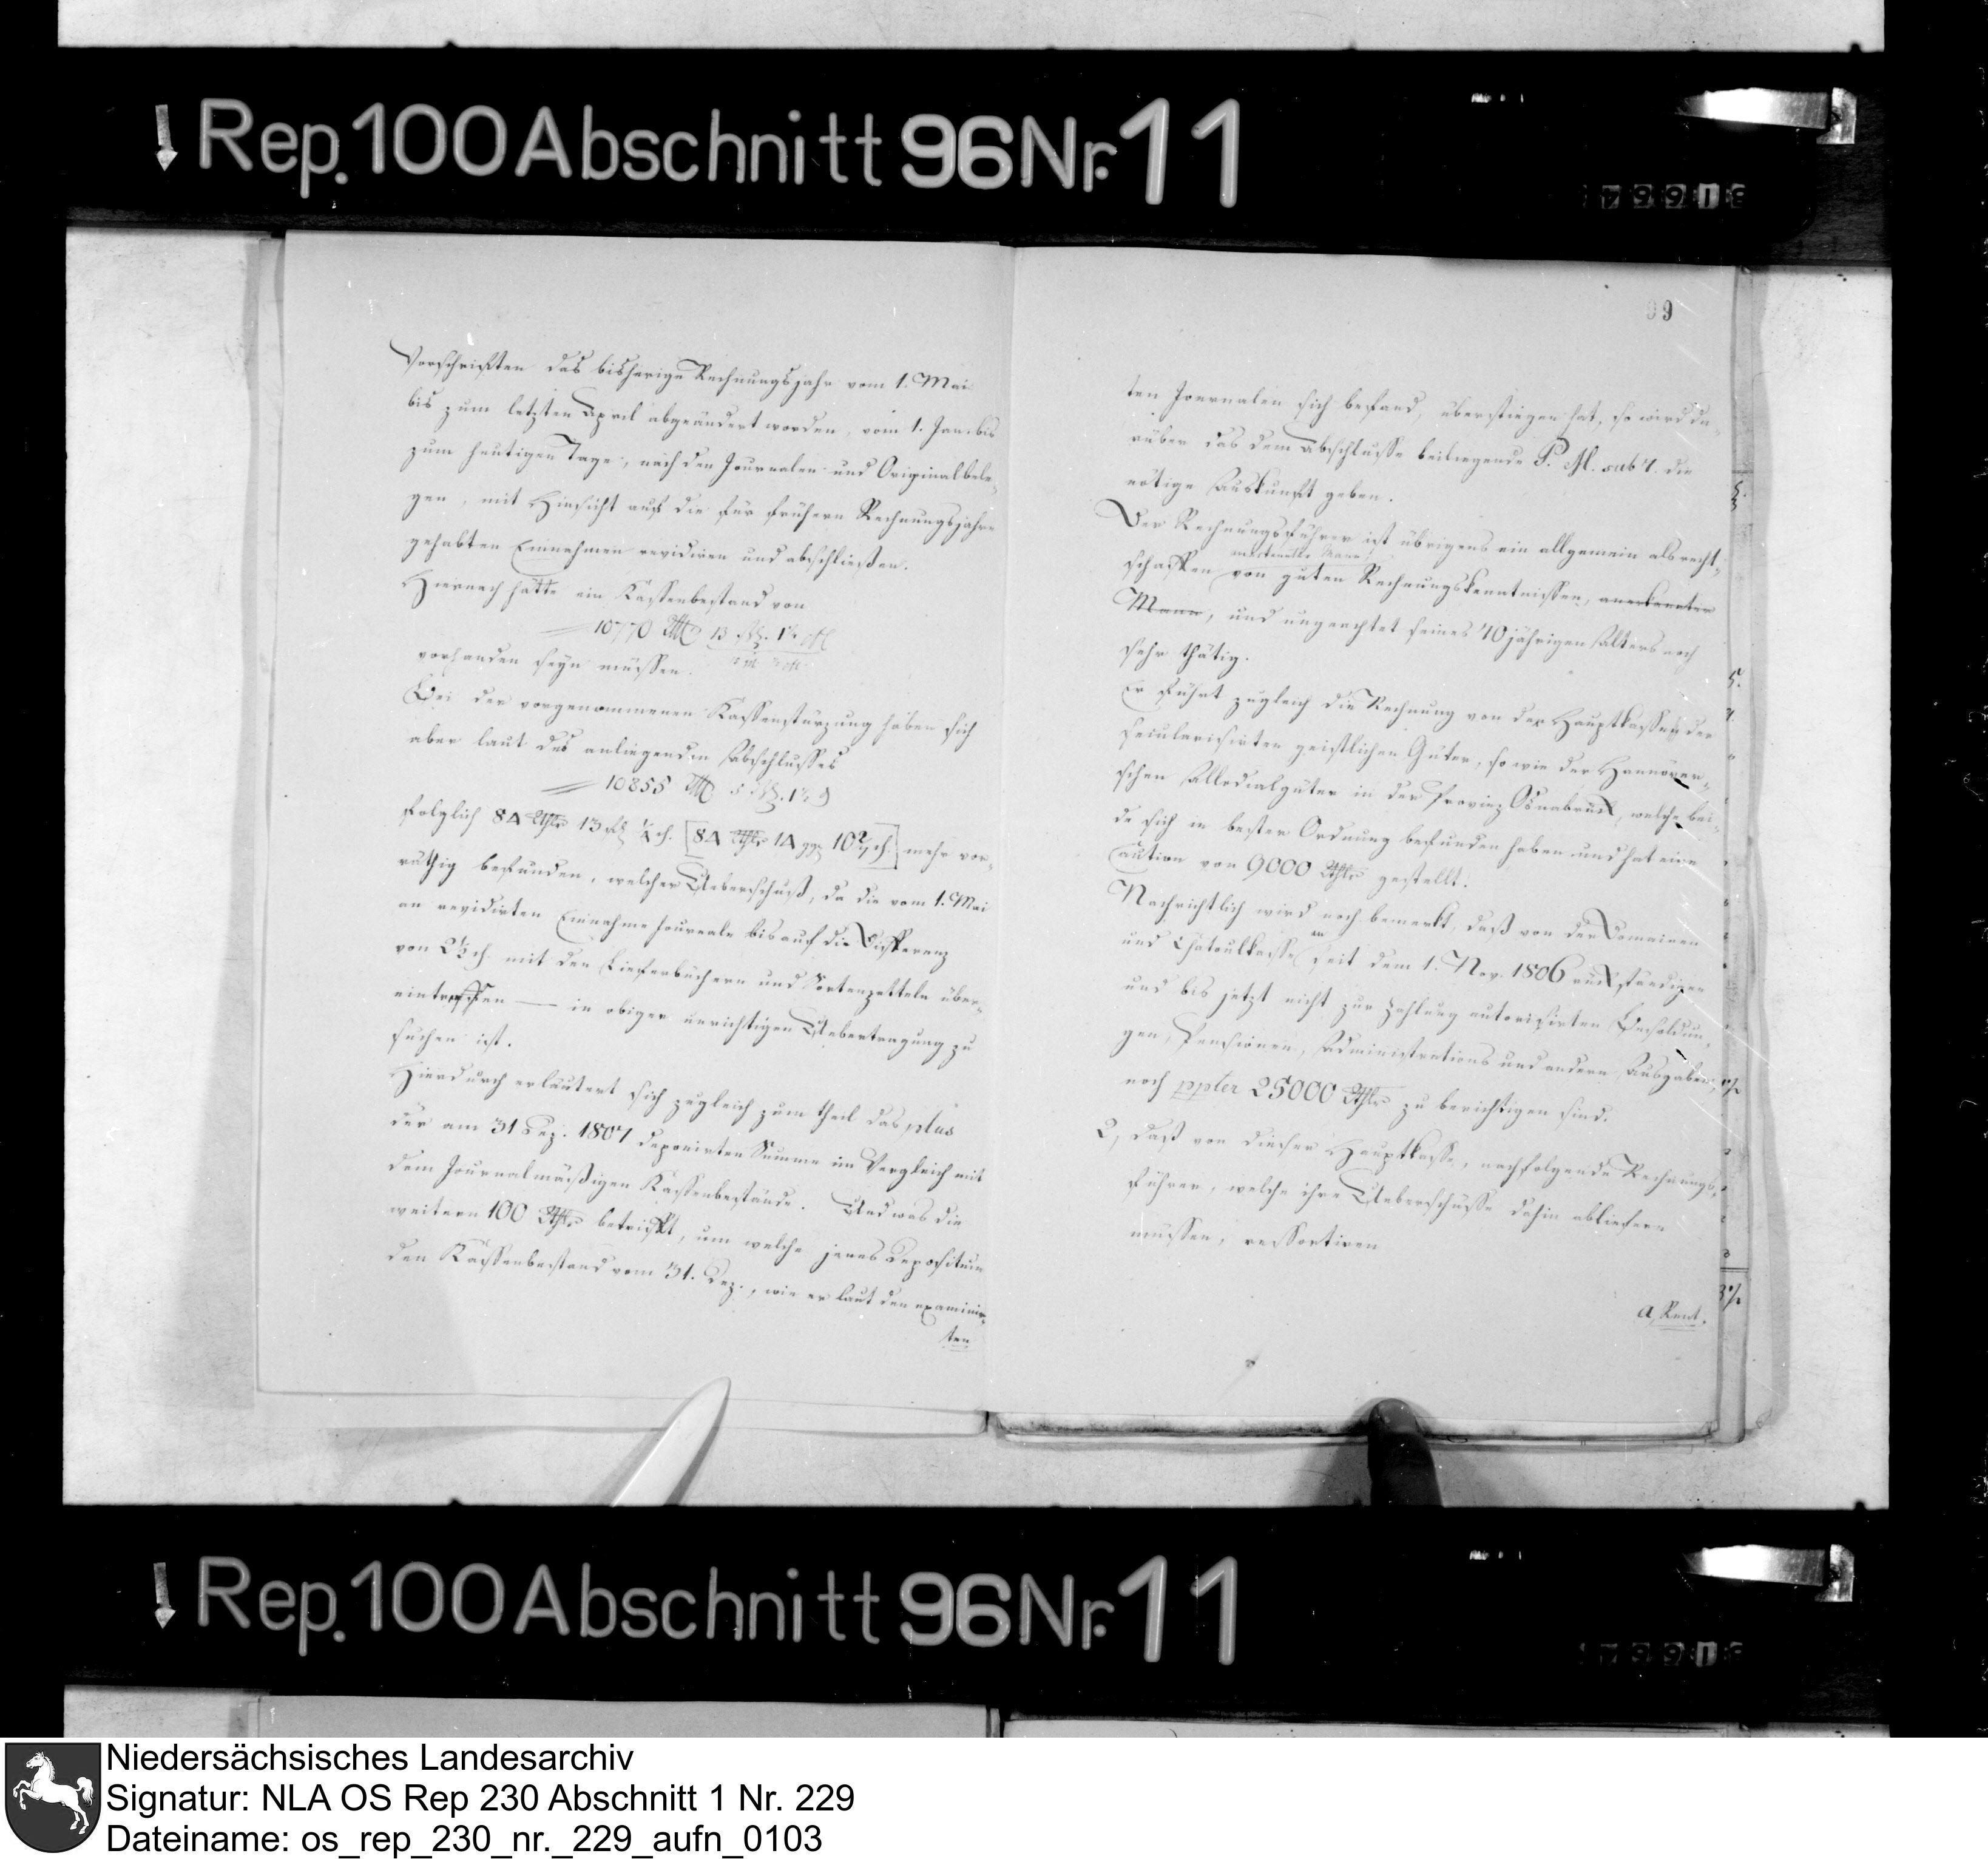 Rep. 100 Abschnitt 96 Nr. 11
Vorschriften das bisherige Rechnungsjahr vom 1. Mai
bis zum letzten April abgeändert worden, vom 1. Jan. bis
zum heutigen Tage, nach den Journalen und Originalbele-
gen, mit Hinsicht auf die für frühern Rechnungsjahre
gehabten Einnahmen revidiren und abschließen.
Hiernach hätte ein Kassenbestand von
10770 Rthlr 13 ßl.
vorhanden seyn müssen.
Bei der vorgenommenen Kassenstürzung haben sich
aber laut des anliegenden Abschlusses
10855 Rthlr
folglich 84 Rthlr 13 ßl ¼ ch. [84 Rthlr 14 ggr 10 2/7 ch.] mehr vor-
räthig befunden, welcher Ueberschuß, da die vom 1. Mai
an revidirten Einnahme Journale bis auf die Differenz
von 2½ ch. mit den Lieferbüchern und Sortenzetteln über-
eintreffen — in obiger unrichtigen Uebertragung zu
suchen ist.
Hierdurch erläutert sich zugleich zum theil das plus
der am 31 Dez. 1807 deponirten Summe im Vergleich mit
dem Journalmäßigen Kassenbestande. Und was die
weitern 100 Rthlr betrifft, um welche jenes Depositum
den Kassenbestand vom 31. Dez., wie er laut den examinir-
ten
99
ten Journalen sich befand, überstiegen hat, so wird da-
rüber das dem Abschlusse beiliegende P. M. sub 7. die
nötige Auskunft geben.
Der Rechnungsführer ist übrigens ein allgemein als recht-
anerkannter Mann
schaffen von guten Rechnungskenntnissen, anerkannter
Mann, und ungeachtet seines 70jährigen Alters noch
sehr thätig.
Er führt zugleich die Rechnung von der Hauptkassen der
secularisirten geistlichen Güter, so wie der Hannöver-
schen Allodialgüter in der Provinz Osnabrück, welche bei-
de sich in bester Ordnung befunden haben und hat eine
Caution von 9000 Rthlr gestellt.
Nachrichtlich wird noch bemerkt, daß von der Domainen
und Chatoulkasse an seit dem 1. Nov. 1806 rückständigen
und bis jetzt nicht zur Zahlung autorisirten Besoldun-
gen, Pensionen, Administrations und andern Ausgaben,
noch ppter 25000 Rthlr zu berichtigen sind.
2, daß von dieser Hauptkasse, nachfolgende Rechnungs-
führer, welche ihre Ueberschüsse dahin abliefern
müssen, ressortiren
a, Rent.
Rep. 100 Abschnitt 96 Nr. 11
Niedersächsisches Landesarchiv
Signatur: NLA OS Rep 230 Abschnitt 1 Nr. 229
Dateiname: os_rep_230_nr._229_aufn_0103